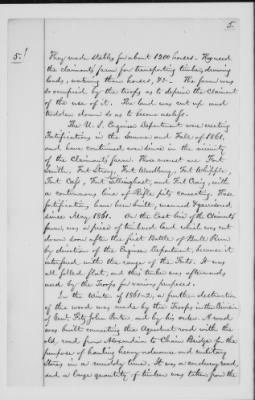 5.
5!
They made stables for about 1200 horses. They used
the claimants farm for transporting timber, driving
loads, watering their horses, &c. The farm was
so occupied by the troops as to deprive the Claimant
of the use of it. The land was cut up and
trodden down so as to become useless.
The U.S. Engineer Department was erecting
Fortifications in the Summer and Fall of 1861,
and have continued ever since in the vicinity
of the Claimants farm. Those nearest are Fort
Smith, Fort Strong, Fort Woodbury, Fort Whipple,
Fort Cass, Fort Tillinghast, and Fort Craig, with
a continuous line of Rifle pits connecting. These
fortifications have been built, manned & garrisoned
since May 1861. On the East line of the Claimants
farm, was a piece of timbered land which was cut
down soon after the first Battle of Bull Run
by direction of the Engineer Department, because it
interfered with the range of the Forts. It was
all felled flat, and this timber was afterwards
used by the Troops for various purposes.
In the Winter of 1861-2, a further destruction
of the wood was made by the Troops in the Division
of Genl. Fitz John Porter, and by his order. A road
was built connecting the Aqueduct road with the
old road from Alexandria to Chain Bridge for the
purpose of hauling heavy ordnance and military
stores in a muddy time. It was a corduroy road,
and a large quantity of timber was taken from the